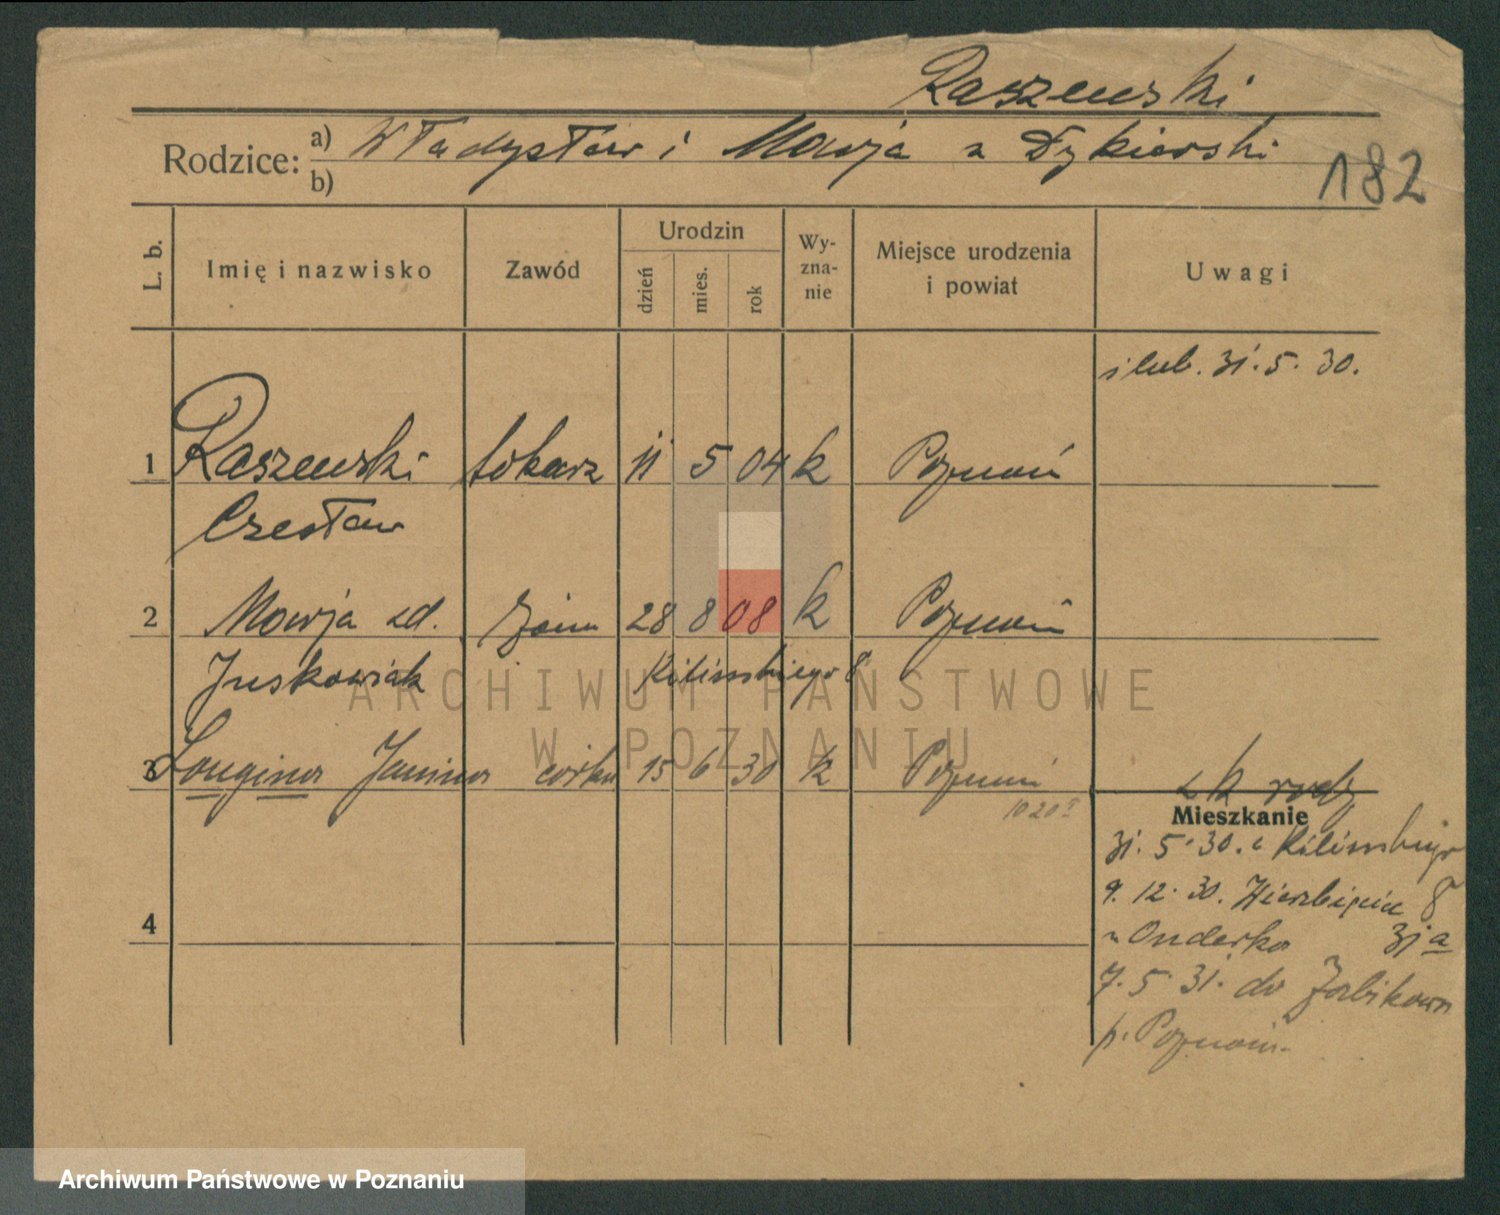 Raszewski
Rodzice: a) Władysław i Marja z Dykierski
b)
182
L. b. Imię i nazwisko Zawód Urodzin dzień mies. rok Wy-zna-nie Miejsce urodzenia i powiat Uwagi
ślub. 31.5.30.
1 Raszewski tokarz 11 5 04 k Poznań
Czesław
2 Marja zd. żona 28 8 08 k Poznań
Juskowiak Kilińskiego 8
ARCHIWUM PAŃSTWOWE
W POZNANIU
3 Longina Janina córka 15 6 30 k Poznań
z k rodz
Mieszkanie
31.5.30. Kilińskiego
9.12.30. Wierzbięcice 8
u Onderka 31a
4
7.5.31. do Żabikowa
p. Poznań.
Archiwum Państwowe w Poznaniu